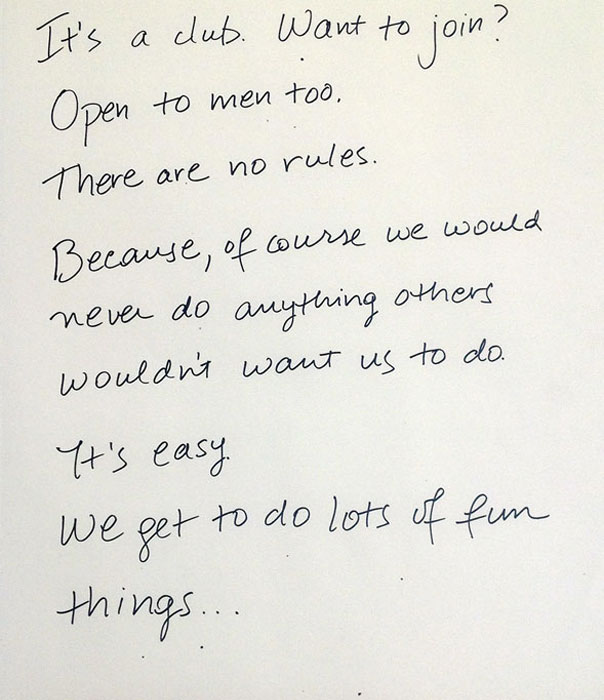 It's a club. Want to join?
Open to men too.
There are no rules.
Because, of course we would
never do anything others
wouldn't want us to do.
It's easy.
We get to do lots of fun
things...